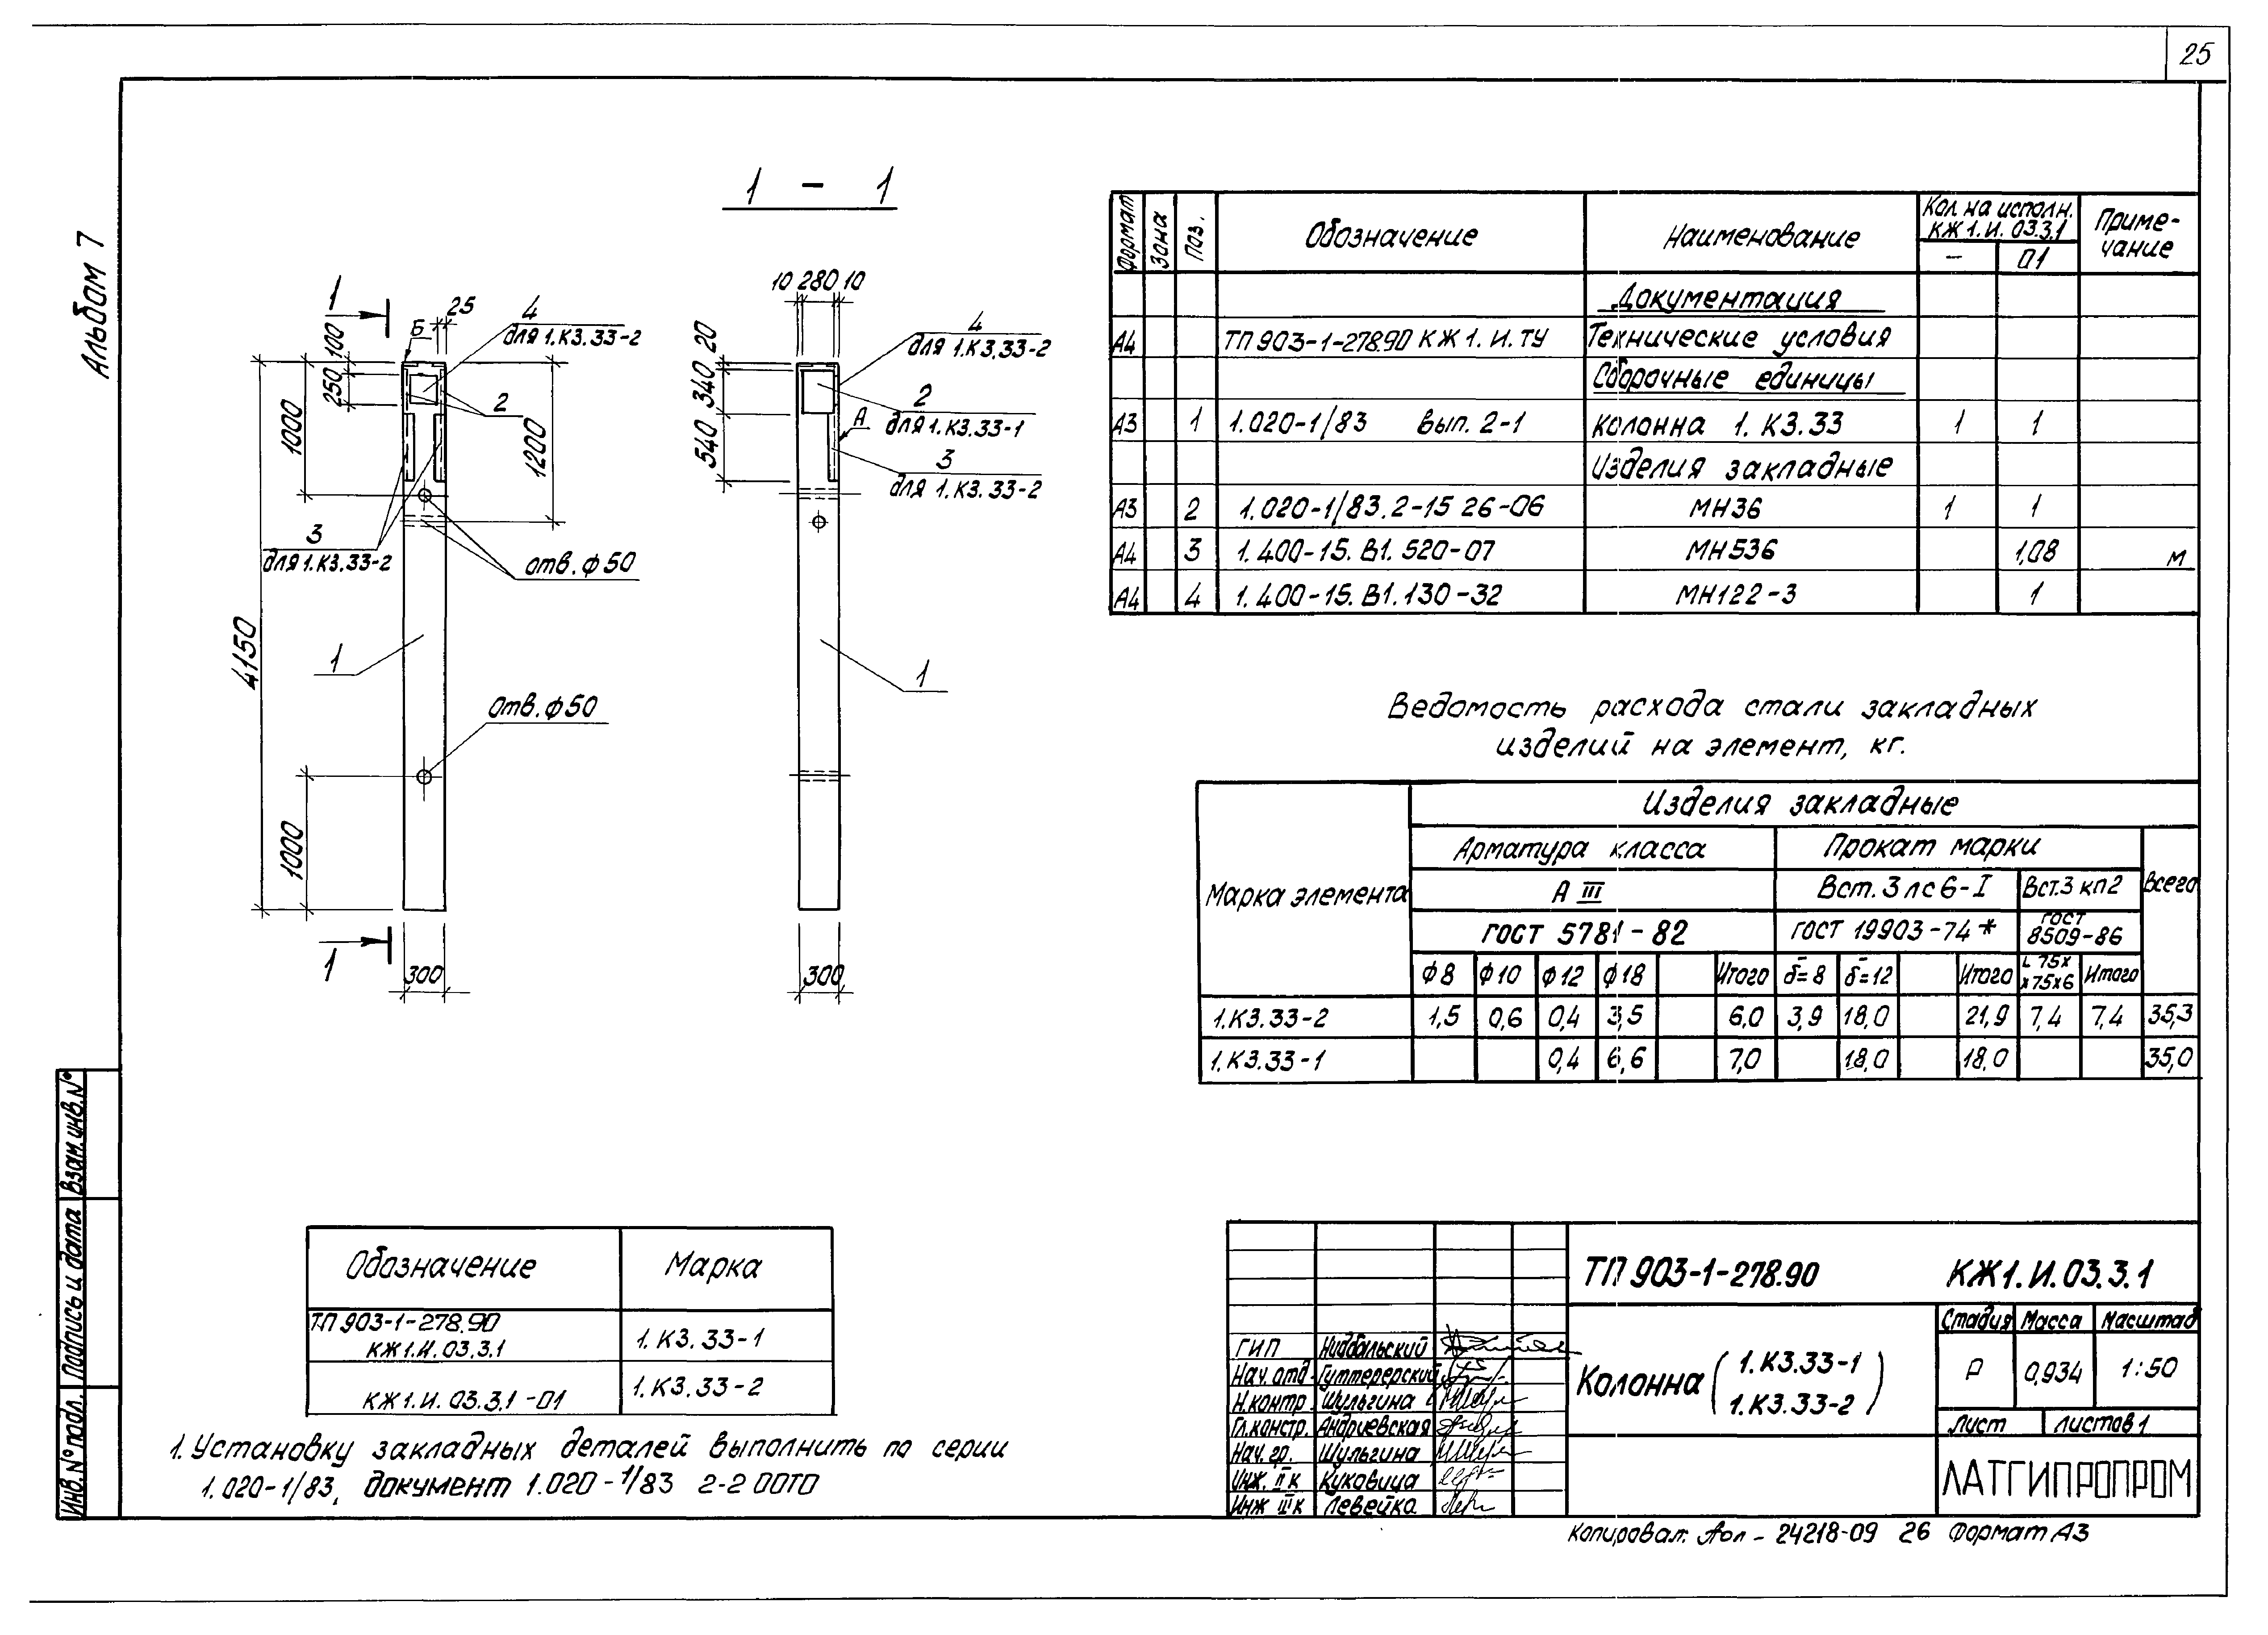 25
Альбом 7
1 - 1
1
Б
25
4
для 1.К3.33-2
100
250
1000
2
1200
3
для 1.К3.33-2
отв. ф 50
4150
1
Отв. ф 50
1000
1
300
10 280 10
20
340
540
4
для 1.К3.33-2
2
для 1.К3.33-1
А
3
для 1.К3.33-2
1
300
Формат Зона Поз. Обозначение Наименование Кол. на исполн. КЖ1.И.03.3.1 Приме-
чание
- 01
Документация
А4 ТП 903-1-278.90 КЖ1.И.ТУ Технические условия
Сборочные единицы
А3 1 1.020-1/83 вып. 2-1 колонна 1.К3.33 1 1
Изделия закладные
А3 2 1.020-1/83.2-15 26-06 МН36 1 1
А4 3 1.400-15.В1.520-07 МН536 1,08 м
А4 4 1.400-15.В1.130-32 МН122-3 1
Ведомость расхода стали закладных
изделий на элемент, кг.
Марка элемента Изделия закладные
Арматура класса Прокат марки Всего
А III Вст. 3 пс 6-I Вст.3 кп2
ГОСТ 5781-82 ГОСТ 19903-74* ГОСТ 8509-86
ф8 ф10 ф12 ф18 Итого δ=8 δ=12 Итого L 75х х75х6 Итого
1.К3.33-2 1,5 0,6 0,4 3,5 6,0 3,9 18,0 21,9 7,4 7,4 35,3
1.К3.33-1 0,4 6,6 7,0 18,0 18,0 35,0
Обозначение Марка
ТП 903-1-278.90
КЖ1.И.03.3.1 1.К3.33-1
КЖ1.И.03.3.1-01 1.К3.33-2
1. Установку закладных деталей выполнить по серии
1.020-1/83, документ 1.020-1/83 2-2 00ТО
Инв. № подл. Подпись и дата Взам. инв. №
ТП 903-1-278.90 КЖ1.И.03.3.1
Колонна (1.К3.33-1
1.К3.33-2)
Стадия Масса Масштаб
Р 0,934 1:50
Лист Листов 1
ЛАТГИПРОПРОМ
ГИП Нидбальский
Нач. отд Гуттерерский
Н.контр. Шульгина
Гл.констр. Андриевская
Нач. гр. Шульгина
Инж. II к Куковица
Инж III к Левейка
Копировал: 24218-09 26 Формат А3